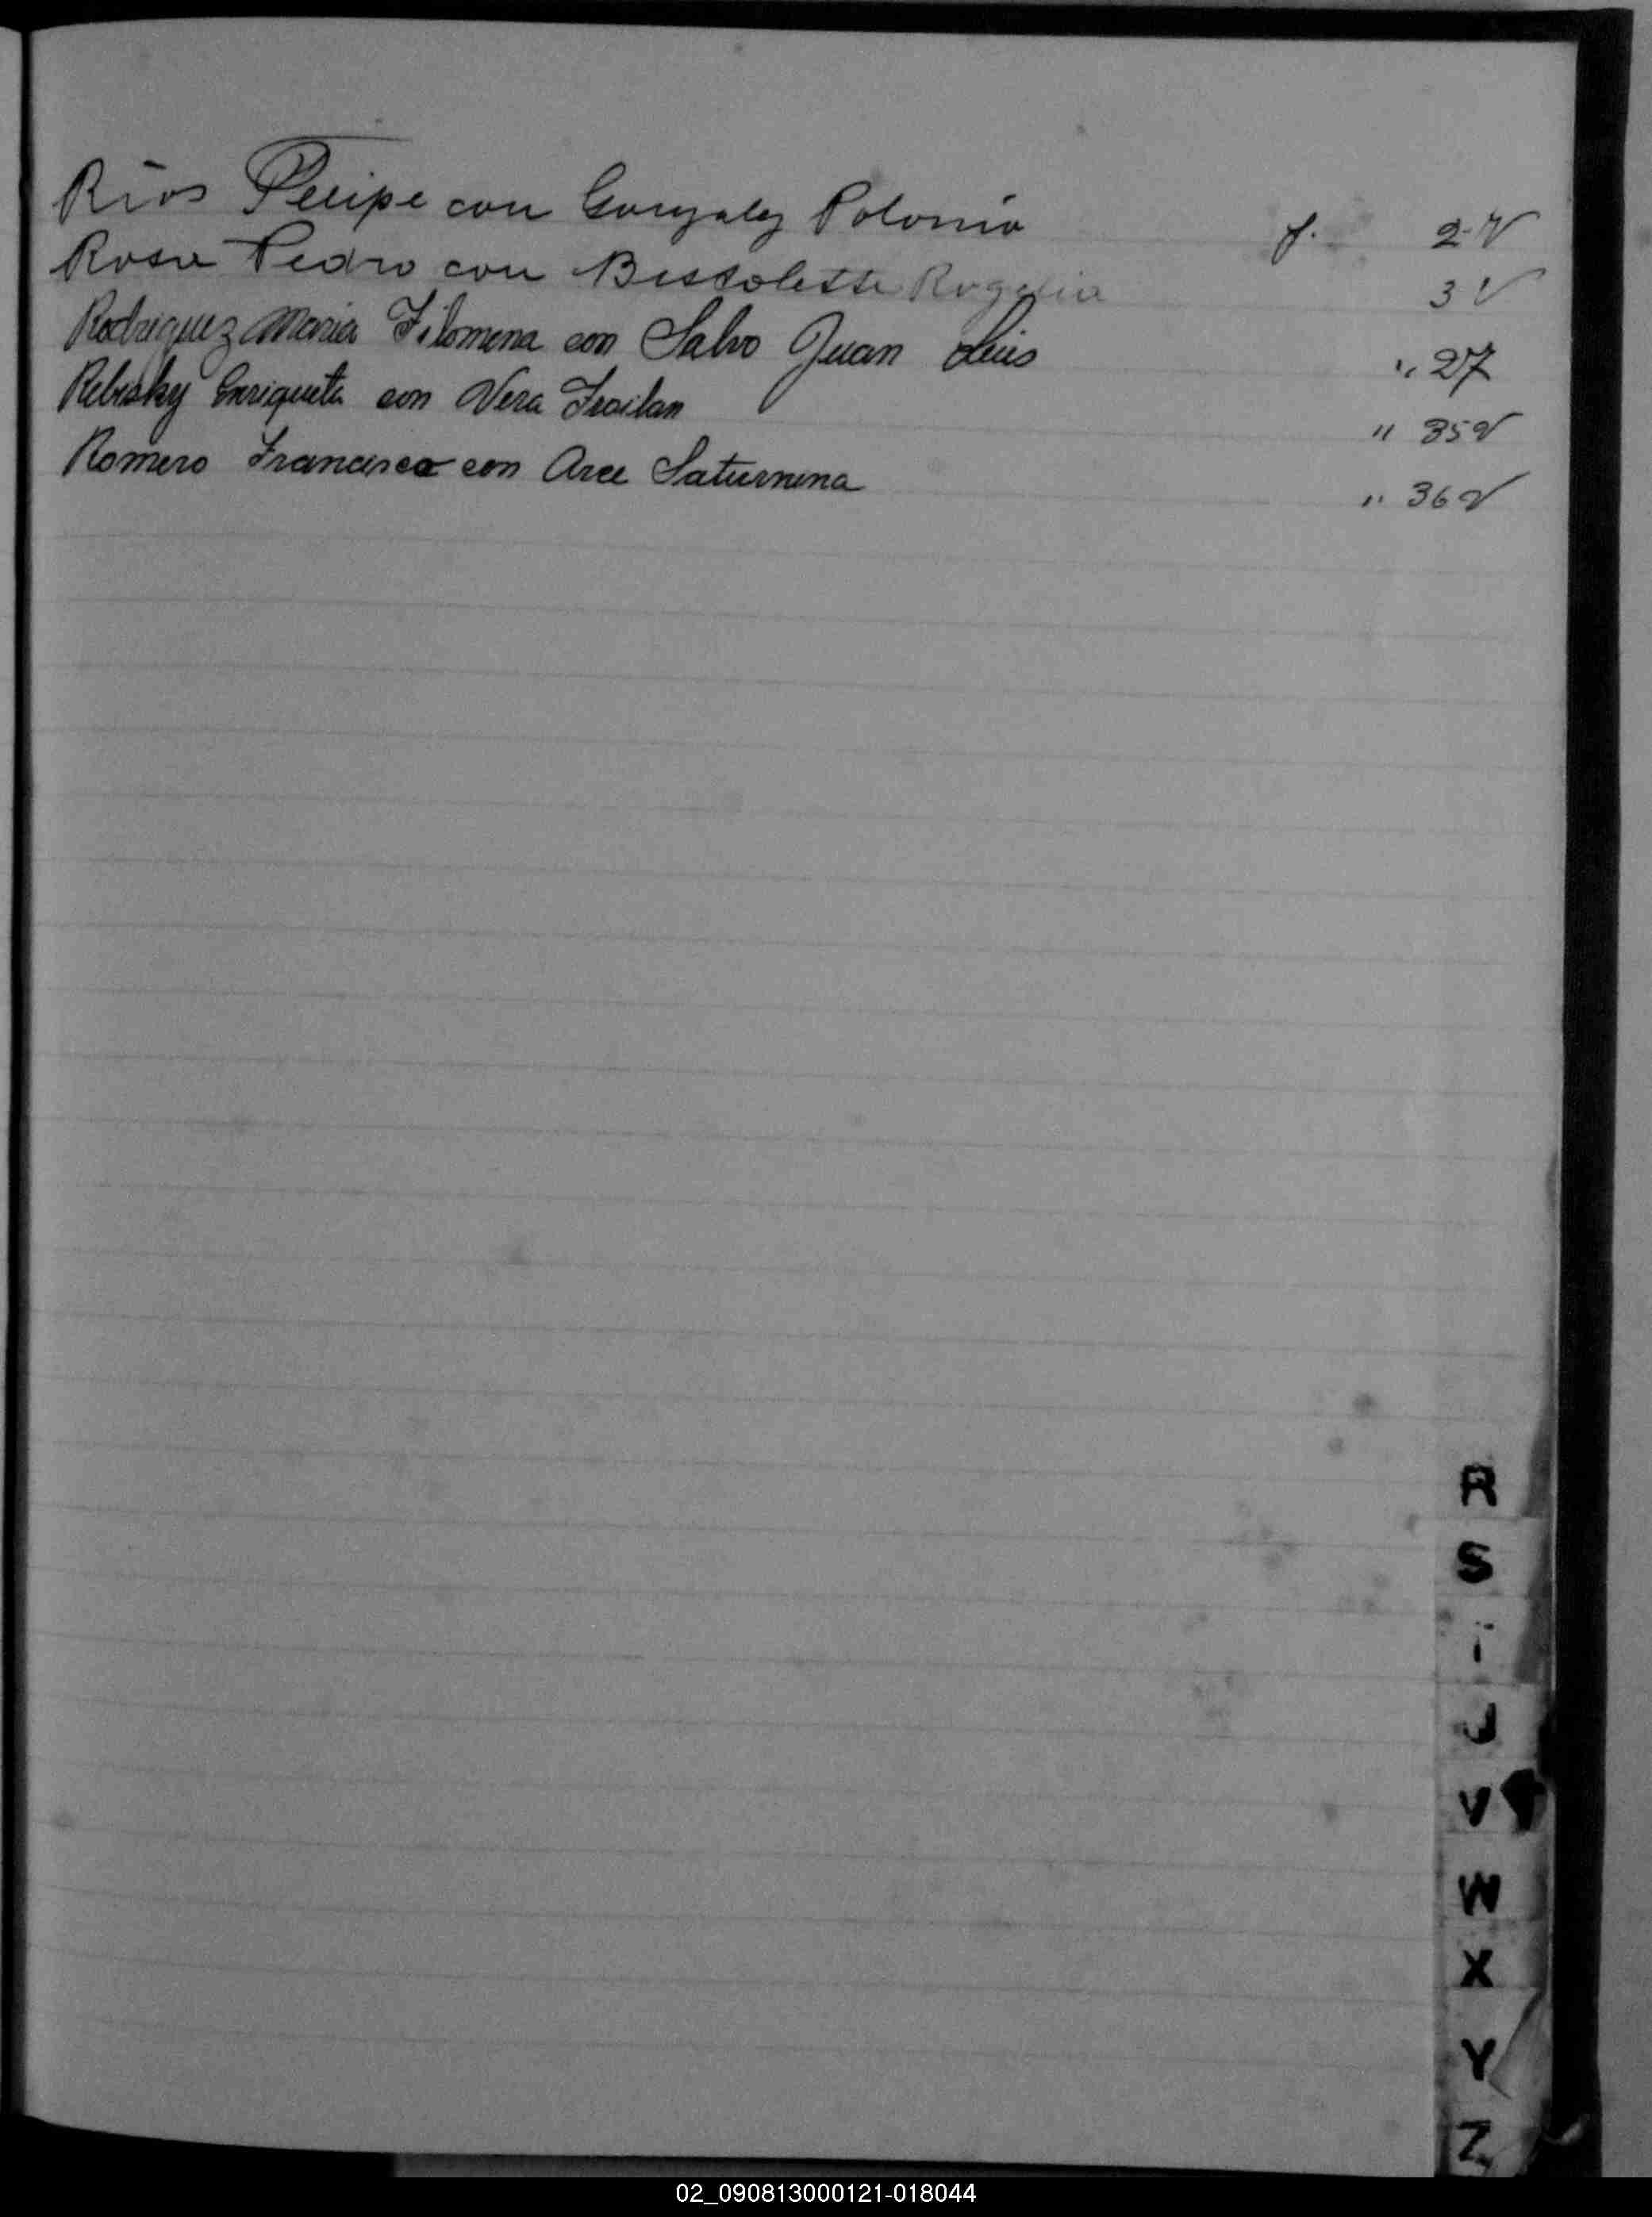 Rios Felipe con Gonzalez Polonia f. 2 V
Rosa Pedro con Rogelia 3 V
Rodriguez Maria Filomena con Salvo Juan Luis " 27
Enriqueta con Vera Froilan " 35 v
Romero Francisco con Arce Saturnina " 36 v
R
S
J
V
W
X
Y
Z
02_090813000121-018044